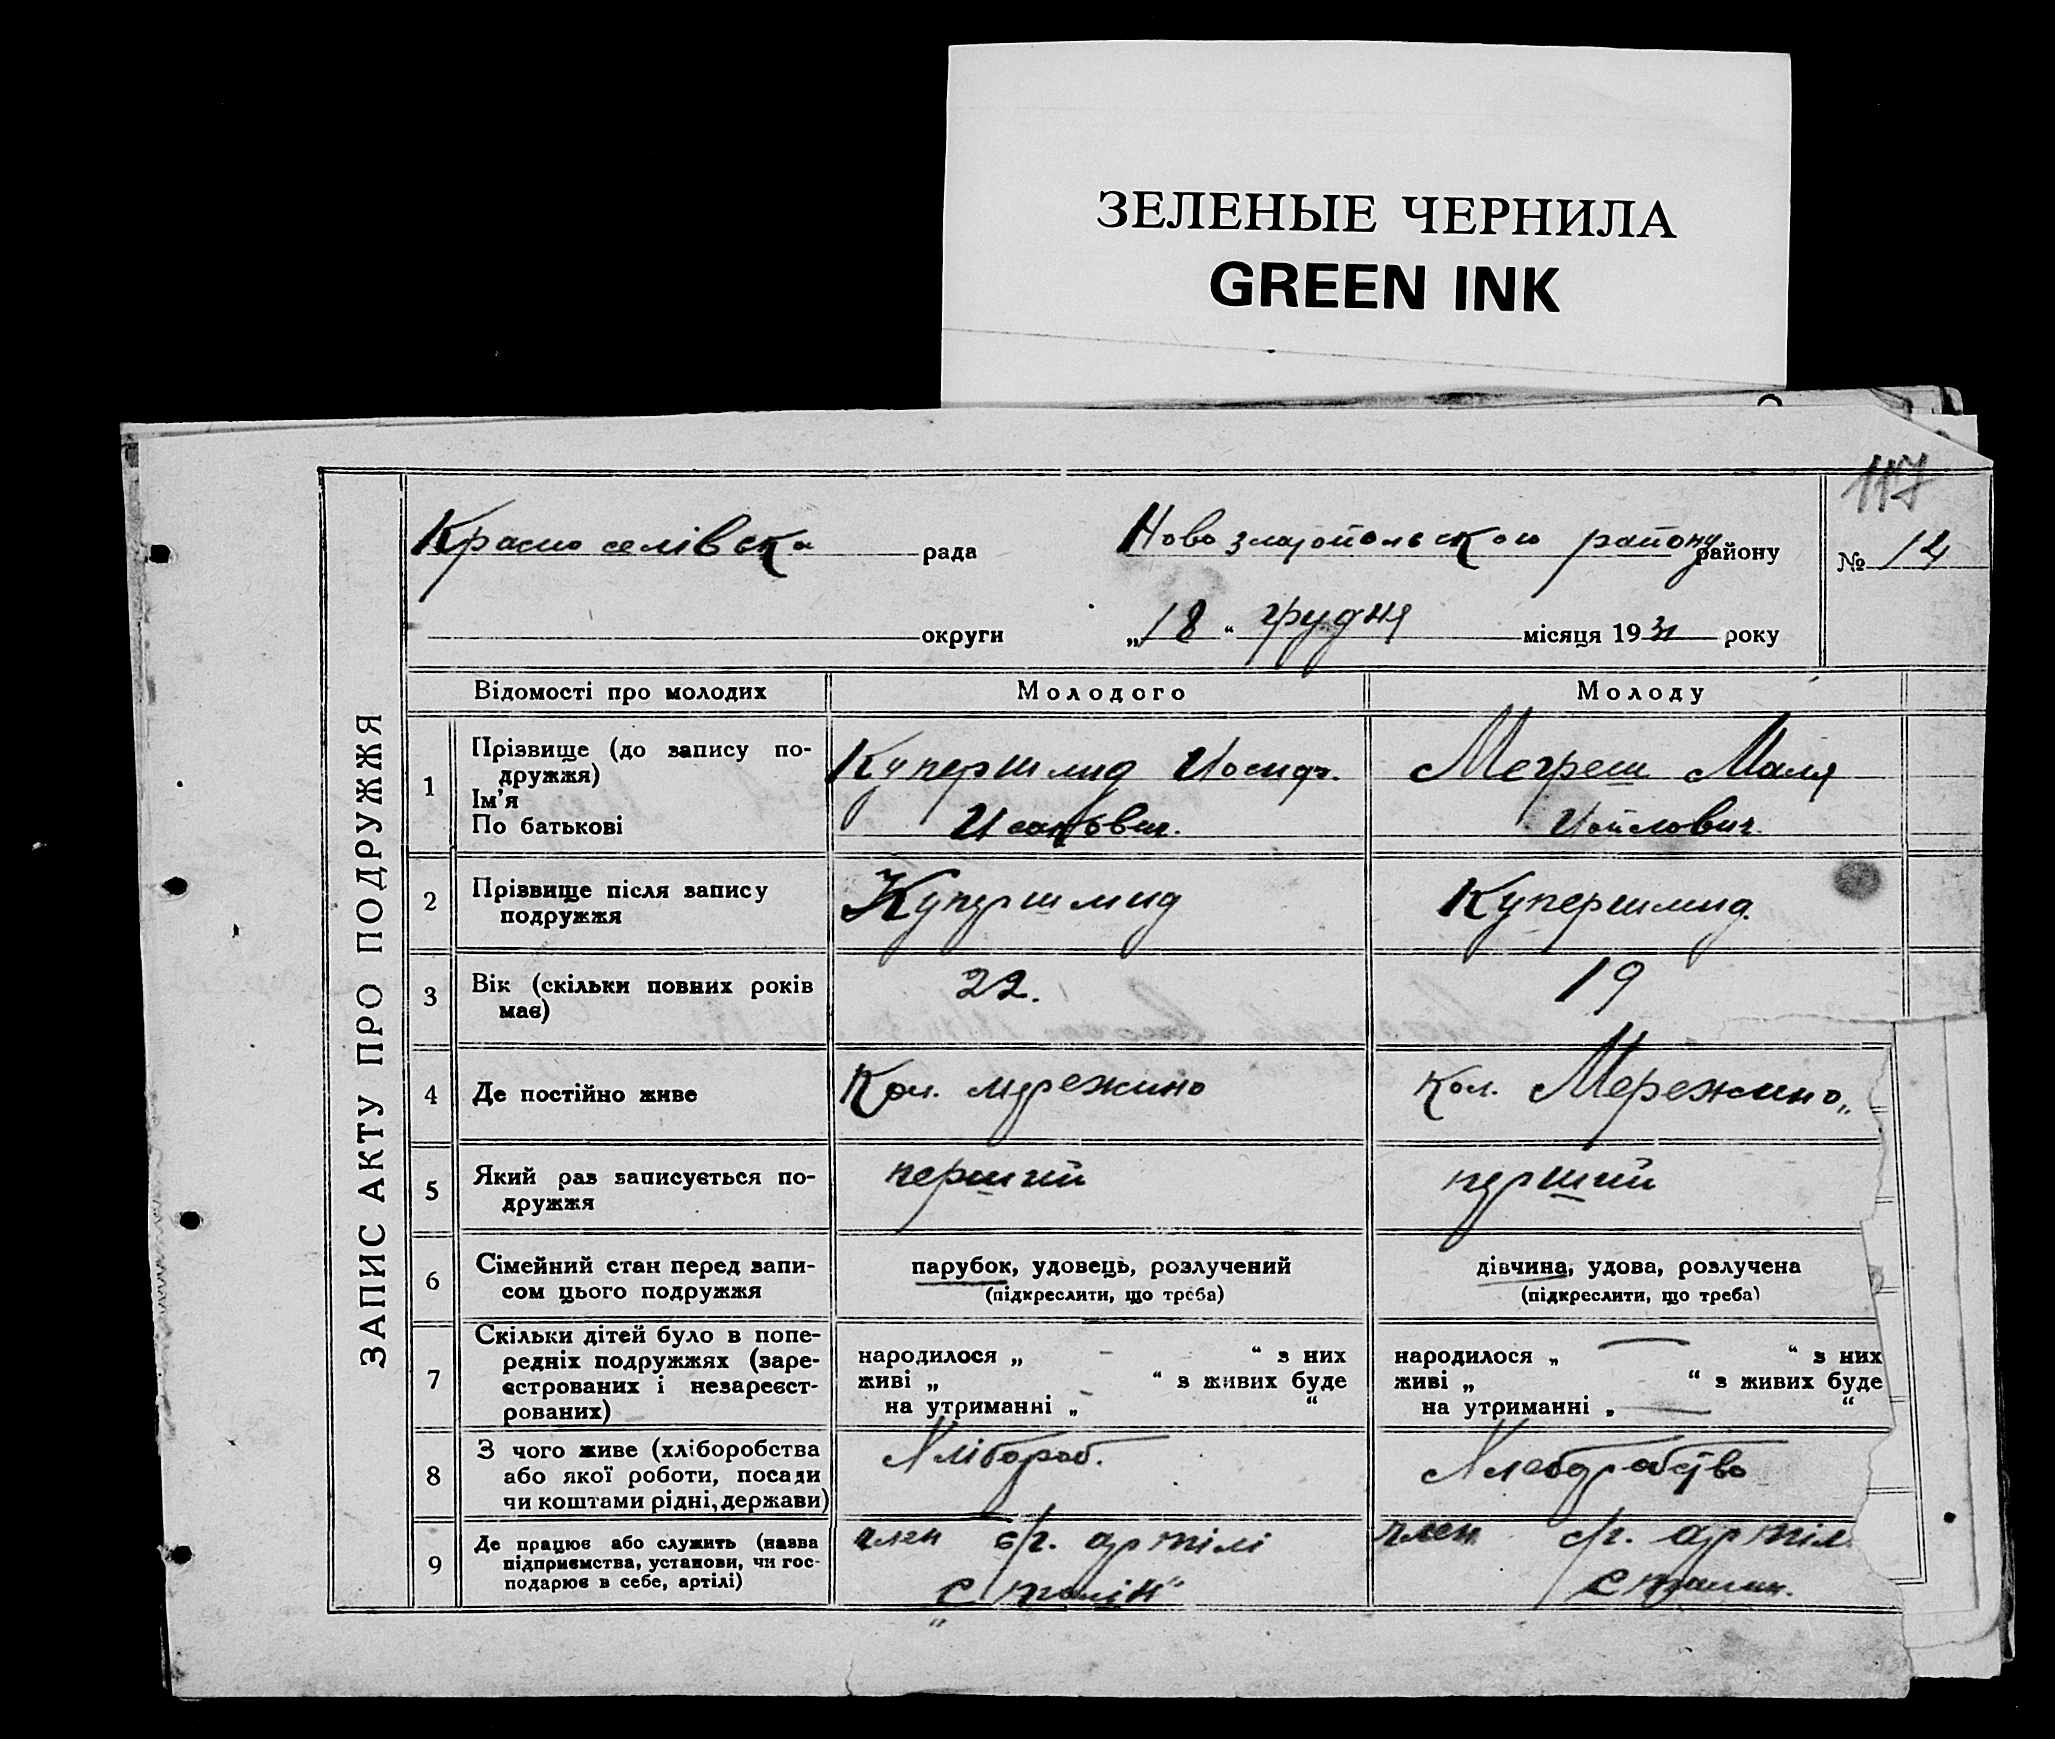 ЗЕЛЕНЫЕ ЧЕРНИЛА
GREEN INK
117
Красноселівска рада Новозлатопольского району району № 14
округи „18“ грудня місяця 1931 року
ЗАПИС АКТУ ПРО ПОДРУЖЖЯ
Відомості про молодих Молодого Молоду
1 Прізвище (до запису по-
дружжя)
Ім'я
По батькові
Купершмид Иосиф
Исакович.
Мегреш Маля
Иойлович.
2 Прізвище після запису
подружжя
Купершмид
Купершмид
3 Вік (скільки повних років
має)
22.
19
4 Де постійно живе
Кол. мережино
Кол. Мережино
5 Який раз записується по-
дружжя
перший
перший
6 Сімейний стан перед запи-
сом цього подружжя
парубок, удовець, розлучений
(підкреслити, що треба)
дівчина, удова, розлучена
(підкреслити, що треба)
7 Скільки дітей було в попе-
редніх подружжях (заре-
єстрованих і незареєст-
рованих)
народилося „ - “ з них
живі „ “ з живих буде
на утриманні „ - “
народилося „ — “ з них
живі „ “ з живих буде
на утриманні „ — “
8 З чого живе (хліборобства
або якої роботи, посади
чи коштами рідні, держави)
Хлібороб.
Хлеборобство
9 Де працює або служить (назва
підприємства, установи, чи гос-
подарює в себе, артілі)
член с/г. артілі
„Сталін“
член с/г. артіл
Сталин.